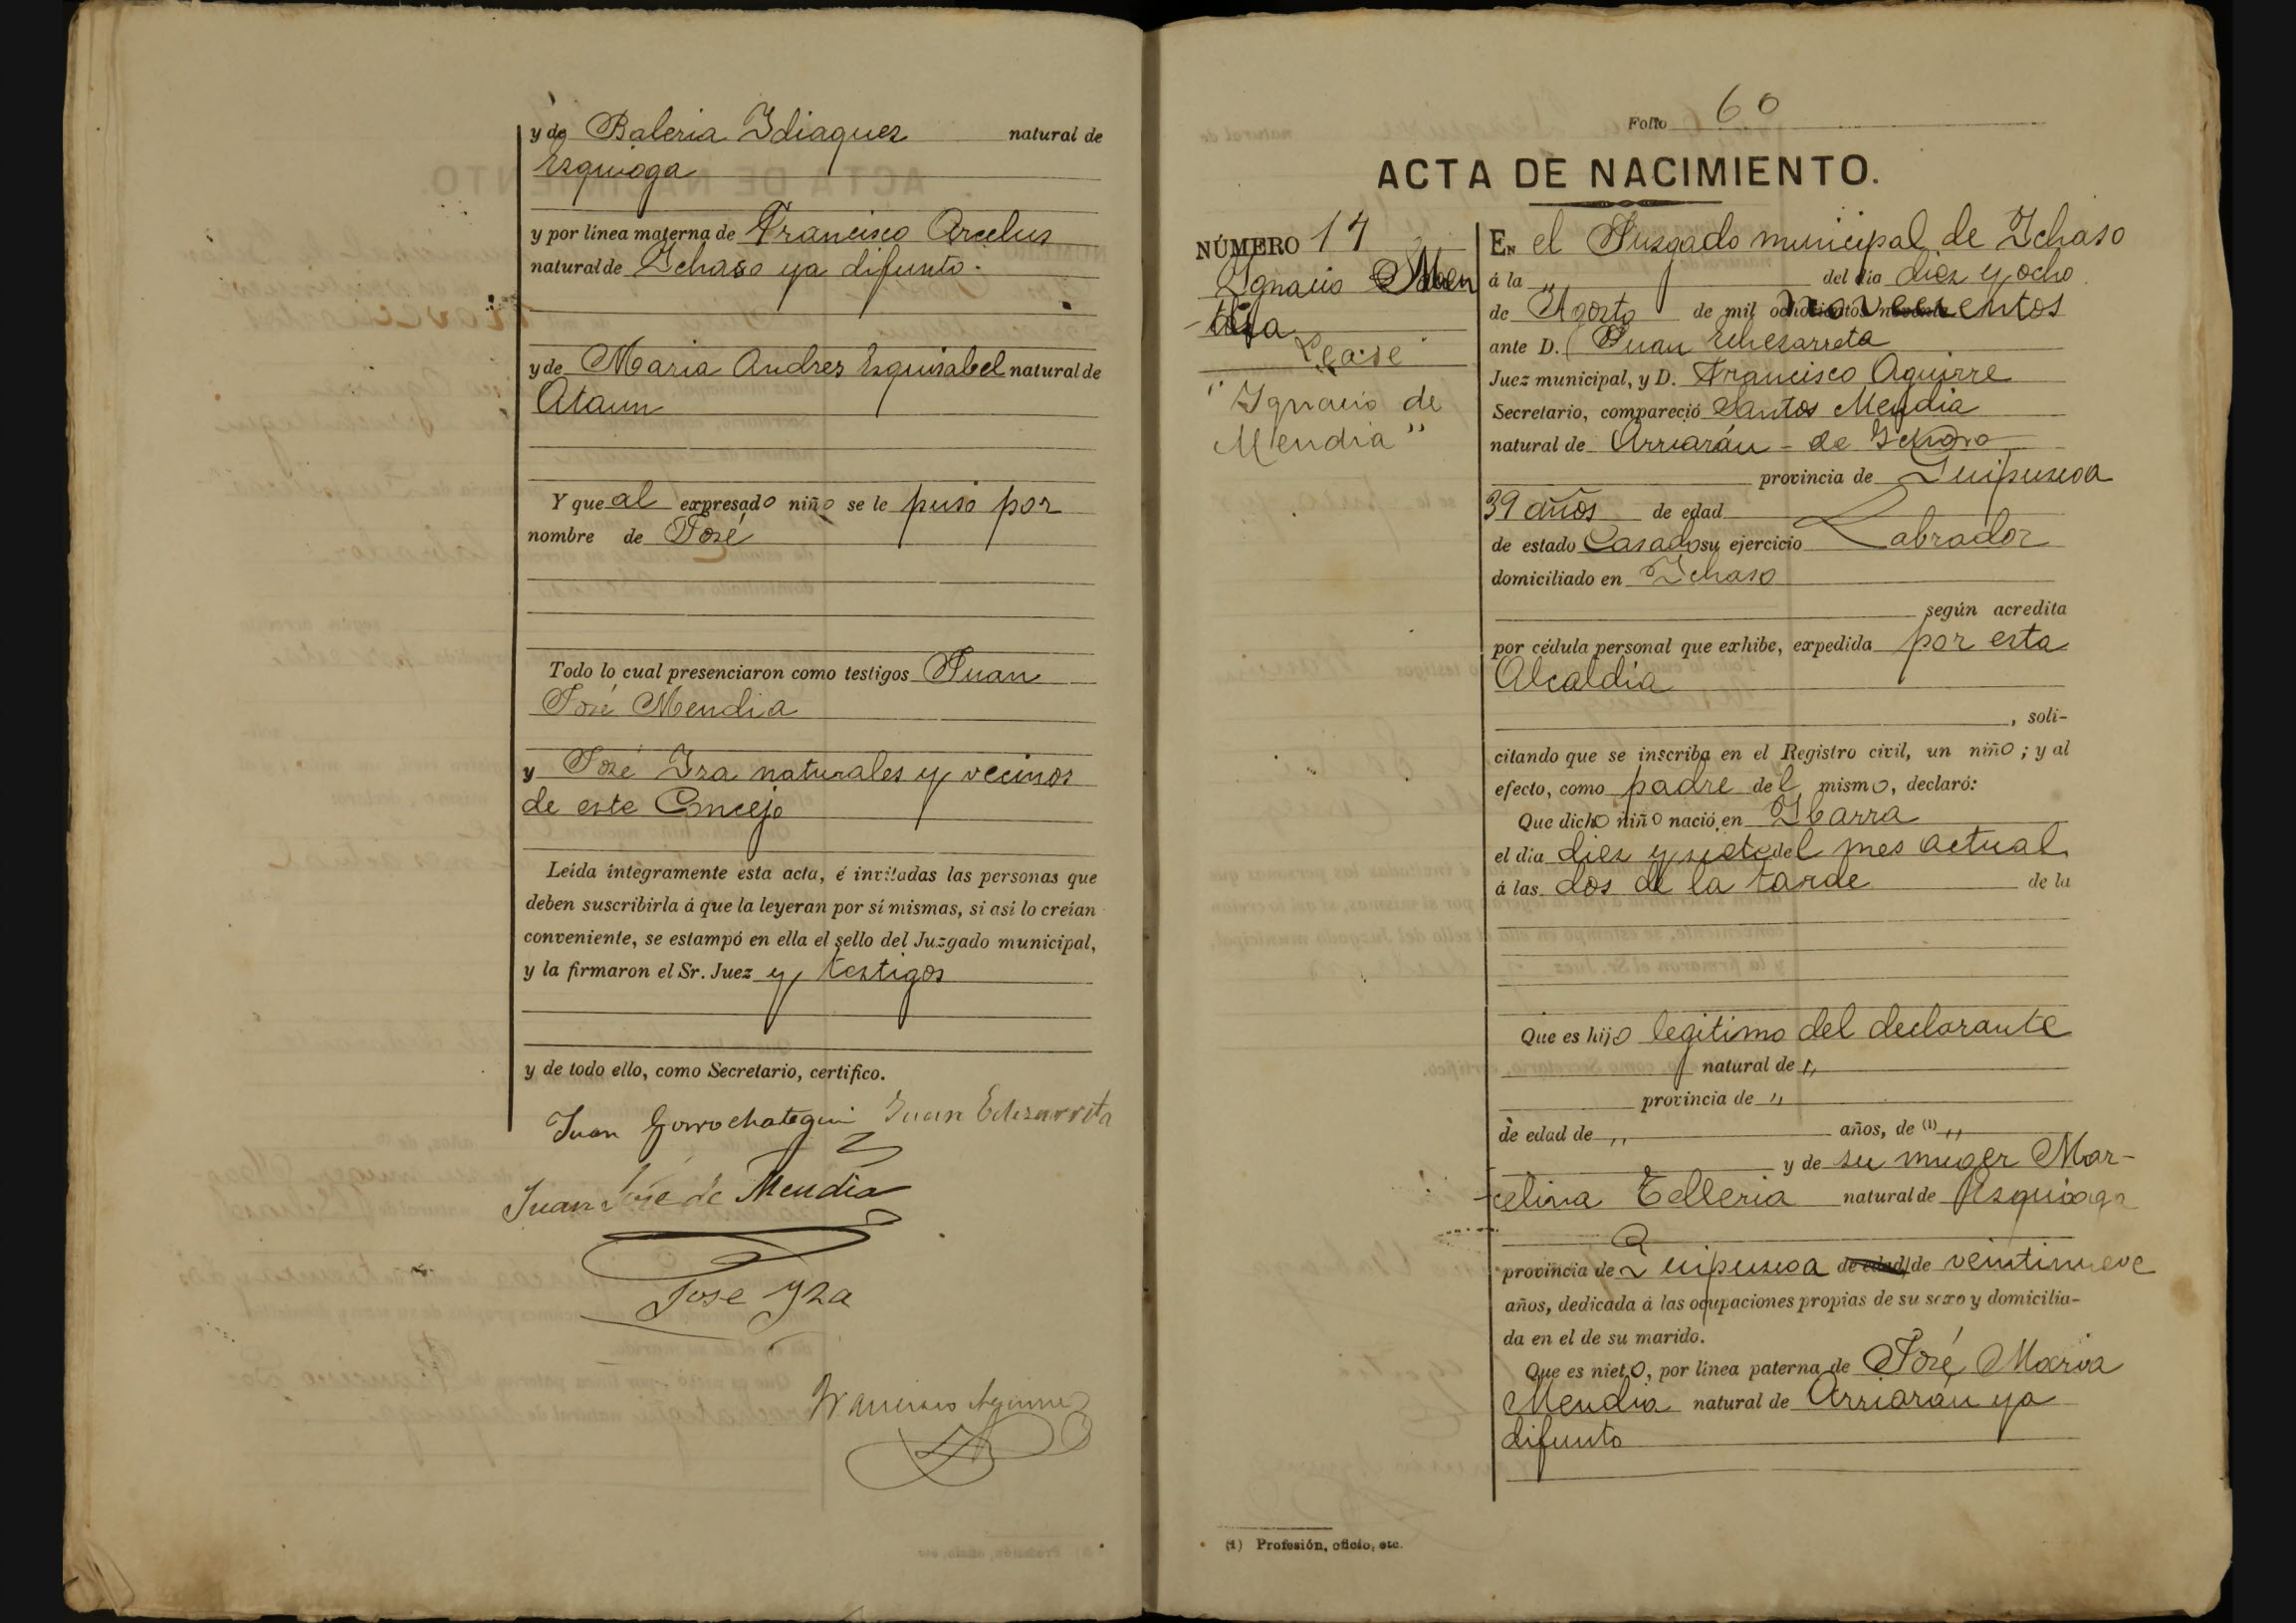 y de Baleria Idiaquez natural de
Ezquioga
y por línea materna de Francisco Arcelus
natural de Ichaso ya difunto.
y de Maria Andres Esquisabel natural de
Ataun
Y que al expresado niño se le puso por
nombre de José
Todo lo cual presenciaron como testigos Juan
José Mendia
y José Iza naturales y vecinos
de este Concejo
Leída íntegramente esta acta, é invitadas las personas que
deben suscribirla á que la leyeran por sí mismas, si así lo creían
conveniente, se estampó en ella el sello del Juzgado municipal,
y la firmaron el Sr. Juez y testigos
y de todo ello, como Secretario, certifico.
Juan Gorrochategui Juan Echezarreta
Juan José de Mendia
Jose Yza
Francisco Aguirre
Folio 60
ACTA DE NACIMIENTO.
NÚMERO 14
Ignacio Men
dia
Lease
"Ignacio de
Mendia"
EN el Juzgado municipal de Ichaso
á la " del día diez y ocho
de Agosto de mil novecientos
ante D. Juan Echezarreta
Juez municipal, y D. Francisco Aguirre
Secretario, compareció Santos Mendia
natural de Arriarán - de Ichaso
provincia de Guipuzcoa
39 años de edad
de estado Casado su ejercicio Labrador
domiciliado en Ichaso
según acredita
por cédula personal que exhibe, expedida por esta
Alcaldía
, soli-
citando que se inscriba en el Registro civil, un niño; y al
efecto, como padre del mismo, declaró:
Que dicho niño nació en Ibarra
el día diez y siete del mes actual
á las dos de la tarde de la
Que es hijo legitimo del declarante
natural de "
provincia de "
de edad de " años, de (1) "
y de su muger Mar-
celina Telleria natural de Ezquioga
provincia de Guipuzcoa de edad de veintinueve
años, dedicada á las ocupaciones propias de su sexo y domicilia-
da en el de su marido.
Que es nieto, por línea paterna de José Maria
Mendia natural de Arriarán ya
difunto
(1) Profesión, oficio, etc.